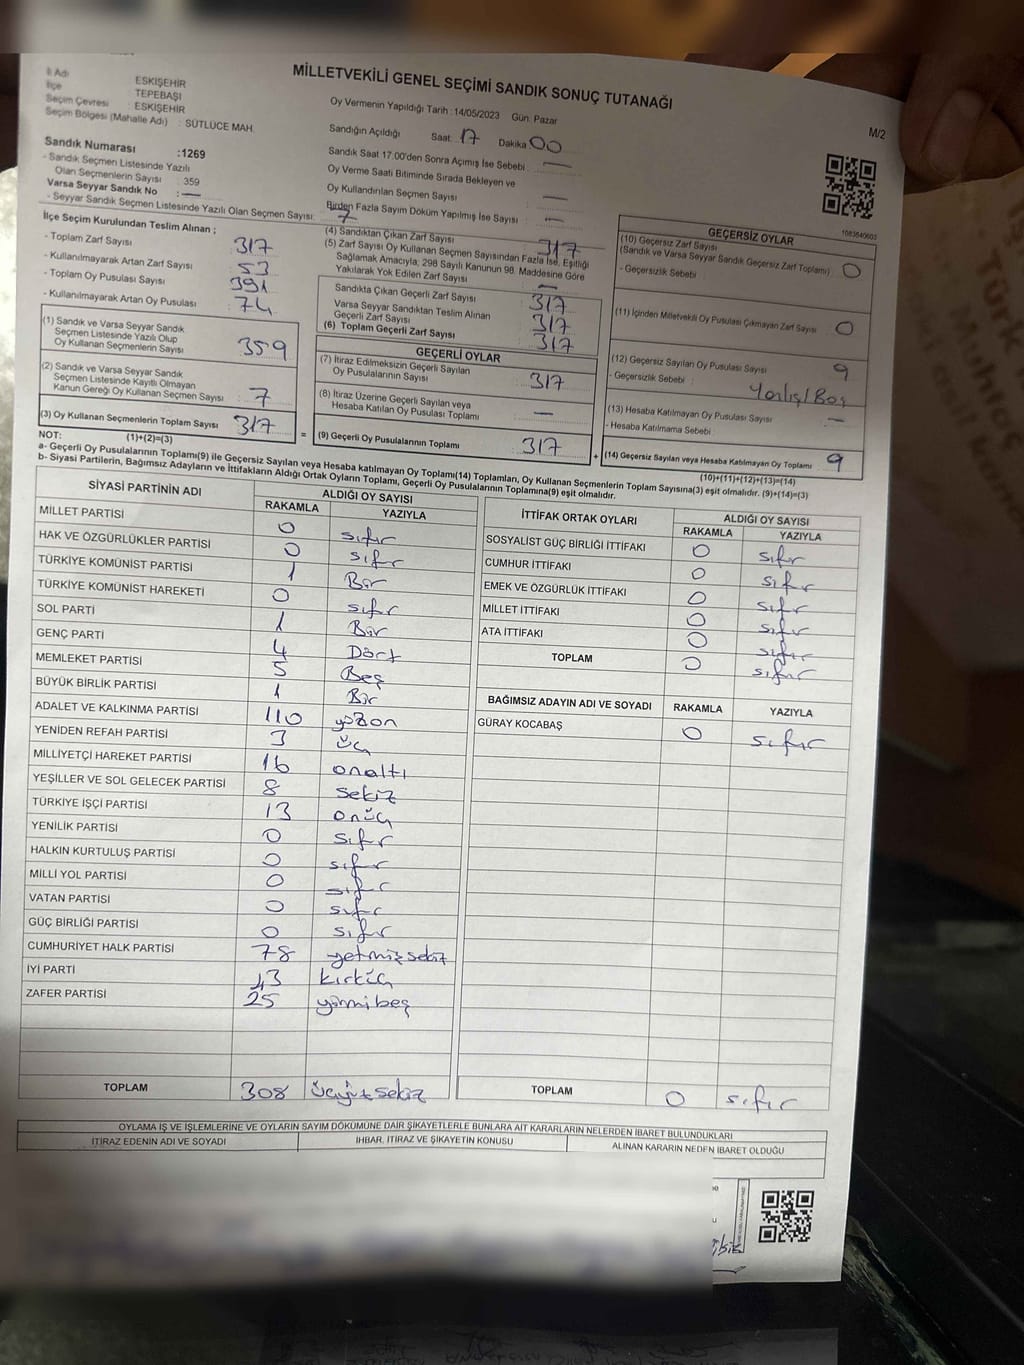 MİLLETVEKİLİ GENEL SEÇİMİ SANDIK SONUÇ TUTANAĞI
M/2
İl Adı ESKİŞEHİR
İlçe TEPEBAŞI
Seçim Çevresi : ESKİŞEHİR
Seçim Bölgesi (Mahalle Adı) : SÜTLÜCE MAH.
Sandık Numarası :1269
- Sandık Seçmen Listesinde Yazılı
Olan Seçmenlerin Sayısı : 359
Varsa Seyyar Sandık No : —
- Seyyar Sandık Seçmen Listesinde Yazılı Olan Seçmen Sayısı:
Oy Vermenin Yapıldığı Tarih : 14/05/2023 Gün: Pazar
Sandığın Açıldığı Saat: 17 Dakika 00
Sandık Saat 17.00'den Sonra Açımış İse Sebebi —
Oy Verme Saati Bitiminde Sırada Bekleyen ve
Oy Kullandırılan Seçmen Sayısı —
Birden Fazla Sayım Döküm Yapılmış İse Sayısı —
7
1083840603
İlçe Seçim Kurulundan Teslim Alınan ;
- Toplam Zarf Sayısı 317
- Kullanılmayarak Artan Zarf Sayısı 53
- Toplam Oy Pusulası Sayısı 391
- Kullanılmayarak Artan Oy Pusulası 74
(1) Sandık ve Varsa Seyyar Sandık
Seçmen Listesinde Yazılı Olup
Oy Kullanan Seçmenlerin Sayısı 359
(2) Sandık ve Varsa Seyyar Sandık
Seçmen Listesinde Kayıtlı Olmayan
Kanun Gereği Oy Kullanan Seçmen Sayısı 7
(3) Oy Kullanan Seçmenlerin Toplam Sayısı 317
(4) Sandıktan Çıkan Zarf Sayısı 317
(5) Zarf Sayısı Oy Kullanan Seçmen Sayısından Fazla İse, Eşitliği
Sağlamak Amacıyla; 298 Sayılı Kanunun 98. Maddesine Göre
Yakılarak Yok Edilen Zarf Sayısı —
Sandıkta Çıkan Geçerli Zarf Sayısı 317
Varsa Seyyar Sandıktan Teslim Alınan
Geçerli Zarf Sayısı 317
(6) Toplam Geçerli Zarf Sayısı 317
GEÇERLİ OYLAR
(7) İtiraz Edilmeksizin Geçerli Sayılan
Oy Pusulalarının Sayısı 317
(8) İtiraz Üzerine Geçerli Sayılan veya
Hesaba Katılan Oy Pusulası Toplamı —
= (9) Geçerli Oy Pusulalarının Toplamı 317
GEÇERSİZ OYLAR
(10) Geçersiz Zarf Sayısı
(Sandık ve Varsa Seyyar Sandık Geçersiz Zarf Toplamı) 0
- Geçersizlik Sebebi :
(11) İçinden Milletvekili Oy Pusulası Çıkmayan Zarf Sayısı 0
(12) Geçersiz Sayılan Oy Pusulası Sayısı 9
- Geçersizlik Sebebi : Yanlış/Boş
(13) Hesaba Katılmayan Oy Pusulası Sayısı —
- Hesaba Katılmama Sebebi
+ (14) Geçersiz Sayılan veya Hesaba Katılmayan Oy Toplamı 9
NOT: (1)+(2)=(3)
(10)+(11)+(12)+(13)=(14)
a- Geçerli Oy Pusulalarının Toplamı(9) ile Geçersiz Sayılan veya Hesaba katılmayan Oy Toplamı(14) Toplamları, Oy Kullanan Seçmenlerin Toplam Sayısına(3) eşit olmalıdır. (9)+(14)=(3)
b- Siyasi Partilerin, Bağımsız Adayların ve İttifakların Aldığı Ortak Oyların Toplamı, Geçerli Oy Pusulalarının Toplamına(9) eşit olmalıdır.
SİYASİ PARTİNİN ADI ALDIĞI OY SAYISI
RAKAMLA YAZIYLA
MİLLET PARTİSİ 0 sıfır
HAK VE ÖZGÜRLÜKLER PARTİSİ 0 sıfır
TÜRKİYE KOMÜNİST PARTİSİ 1 Bir
TÜRKİYE KOMÜNİST HAREKETİ 0 sıfır
SOL PARTİ 1 Bir
GENÇ PARTİ 4 Dört
MEMLEKET PARTİSİ 5 Beş
BÜYÜK BİRLİK PARTİSİ 1 Bir
ADALET VE KALKINMA PARTİSİ 110 yüzon
YENİDEN REFAH PARTİSİ 3 üç
MİLLİYETÇİ HAREKET PARTİSİ 16 onaltı
YEŞİLLER VE SOL GELECEK PARTİSİ 8 sekiz
TÜRKİYE İŞÇİ PARTİSİ 13 onüç
YENİLİK PARTİSİ 0 sıfır
HALKIN KURTULUŞ PARTİSİ 0 sıfır
MİLLİ YOL PARTİSİ 0 sıfır
VATAN PARTİSİ 0 sıfır
GÜÇ BİRLİĞİ PARTİSİ 0 sıfır
CUMHURİYET HALK PARTİSİ 78 yetmişsekiz
İYİ PARTİ 43 kırküç
ZAFER PARTİSİ 25 yirmibeş
TOPLAM 308 üçyüzsekiz
İTTİFAK ORTAK OYLARI ALDIĞI OY SAYISI
RAKAMLA YAZIYLA
SOSYALİST GÜÇ BİRLİĞİ İTTİFAKI 0 sıfır
CUMHUR İTTİFAKI 0 sıfır
EMEK VE ÖZGÜRLÜK İTTİFAKI 0 sıfır
MİLLET İTTİFAKI 0 sıfır
ATA İTTİFAKI 0 sıfır
TOPLAM 0 sıfır
BAĞIMSIZ ADAYIN ADI VE SOYADI RAKAMLA YAZIYLA
GÜRAY KOCABAŞ 0 sıfır
TOPLAM 0 sıfır
OYLAMA İŞ VE İŞLEMLERİNE VE OYLARIN SAYIM DÖKÜMÜNE DAİR ŞİKAYETLERLE BUNLARA AİT KARARLARIN NELERDEN İBARET BULUNDUKLARI
İTİRAZ EDENİN ADI VE SOYADI İHBAR, İTİRAZ VE ŞİKAYETİN KONUSU ALINAN KARARIN NEDEN İBARET OLDUĞU